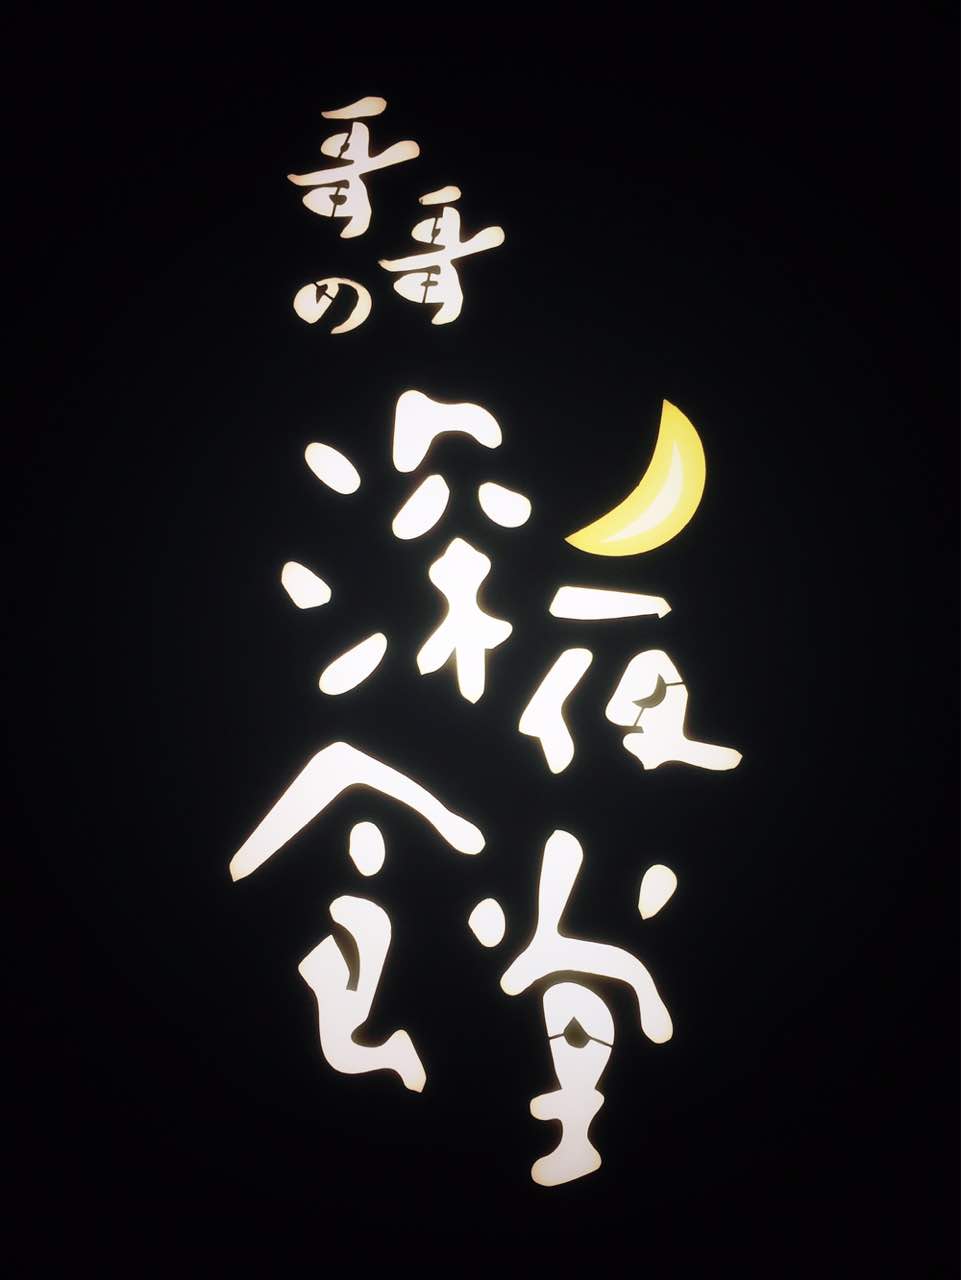 哥哥の
深夜
食堂